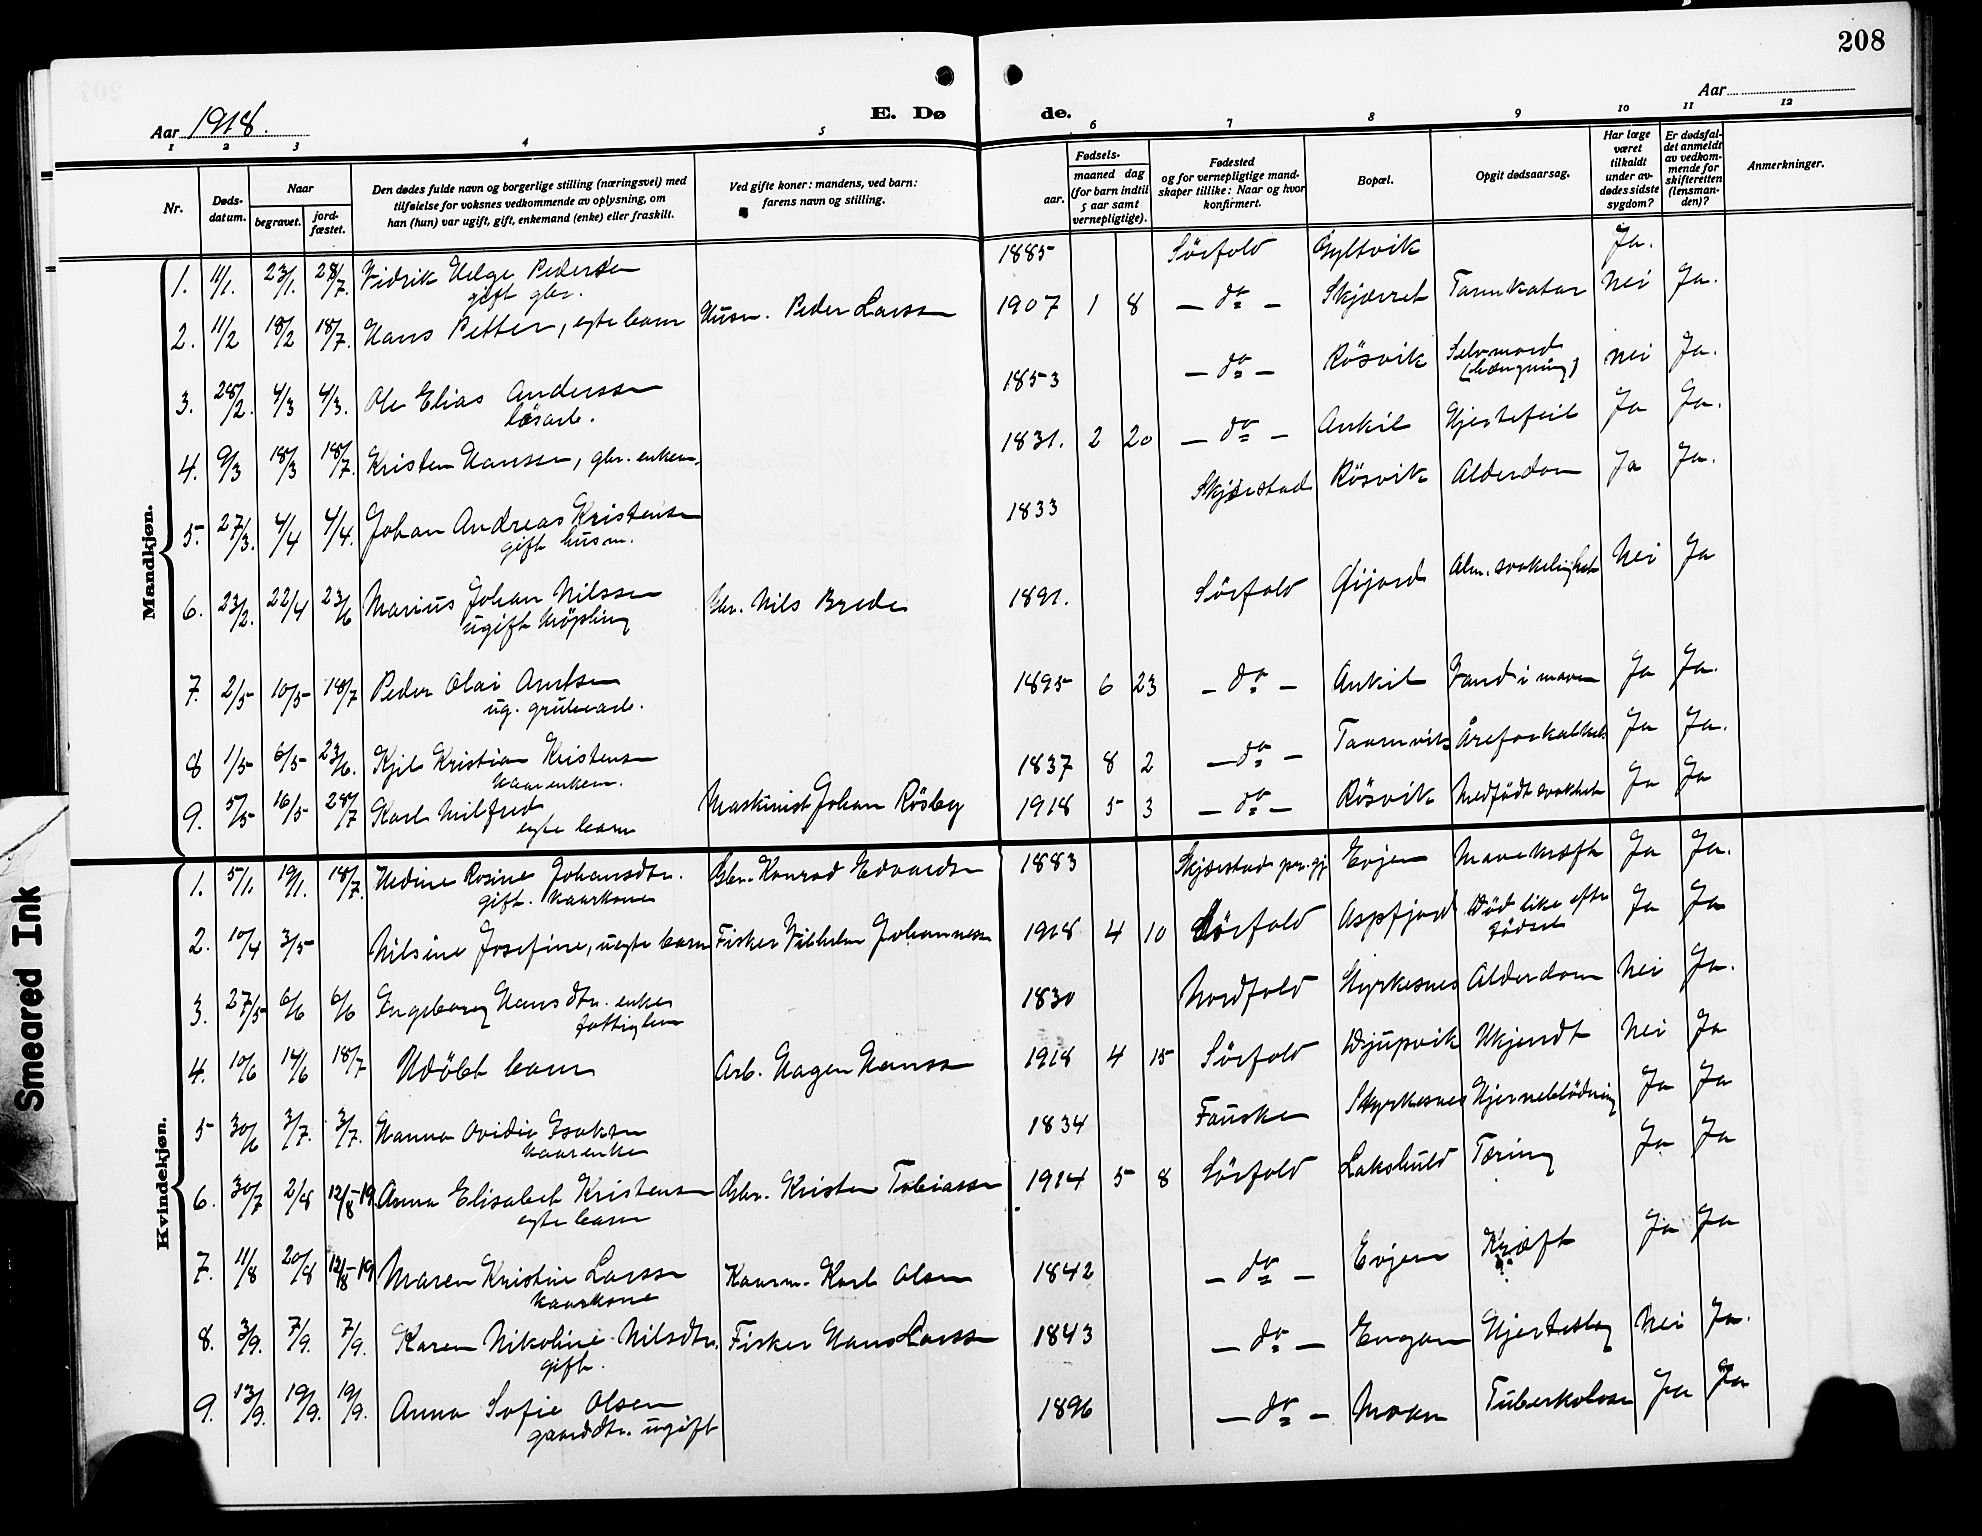 208
Aar 1918.
E. Døde.
Aar
1 2 3 4 5 6 7 8 9 10 11 12
Nr.
Døds-datum.
Naar
begravet.
jord-fæstet.
Den dødes fulde navn og borgerlige stilling (næringsvei) med
tilføielse for voksnes vedkommende av oplysning, om
han (hun) var ugift, gift, enkemand (enke) eller fraskilt.
Ved gifte koner: mandens, ved barn:
farens navn og stilling.
Fødsels-
aar.
maaned dag
(for barn indtil
5 aar samt
vernepligtige).
Fødested
og for vernepligtige mand-
skaper tillike: Naar og hvor
konfirmert.
Bopæl.
Opgit dødsaarsag.
Har læge
været
tilkaldt
under av-
dødes sidste
sygdom?
Er dødsfal-
det anmeldt
av vedkom-
mende for
skifteretten
(lensman-
den)?
Anmerkninger.
Mandkjøn.
1. 11/1. 23/1. 28/7. Fidrik Helge Pedersen 1885 Sörfold Gyltvik Ja.
gift gbr.
2. 11/2 18/2 18/7. Hans Petter, egte barn Husm. Peder Larssen 1907 1 8 — do — Skjærret Tarmkatar Nei Ja.
3. 28/2. 4/3 4/3. Ole Elias Anderssen 1853 — do — Rösvik Selvmord (hængning) Nei Ja.
lösarb.
4. 9/3 18/3 18/7. Kristen Hanssen, gbr. enkem. 1831. 2 20 — do — Ankil Hjertefeil Ja Ja.
5. 27/3. 4/4 4/4. Johan Andreas Kristensen 1833 Skjerstad Rösvik Alderdom Ja Ja.
gift husm.
6. 23/2. 22/4 23/6 Marius Johan Nilssen Gbr. Nils Brede 1891. Sörfold Øijord Alm. svakelighet Nei Ja
ugift krøpling
7. 2/5 10/5 18/7 Peder Olai Arntsen 1895 6 23 — do — Ankil Vand i maven Ja Ja.
ug. grubearb.
8 1/5 6/5 23/6. Kjel Kristian Kristensen 1837 8 2 — do — Taarnvik Åreforkalkn. Ja Ja.
kaarenkem.
9. 5/5 16/5 28/7 Karl Milfred Maskinist Johan Rösby 1918 5 3 — do — Rösvik Medfödt svakhet Ja Ja
egte barn
Kvindekjøn.
1. 5/1. 19/1. 18/7. Hedine Rosine Johansdtr. Gbr. Konrad Edvardsen 1883 Skjerstad pr.gj. Evjen Mavekræft Ja Ja.
gift. kaarkone
2. 10/4 3/5 Nilsine Josefine, uegte barn Fisker Vilhelm Johannessen 1918 4 10 Sörfold Aspfjord Död like efter födsel Ja Ja
3. 27/5 6/6 6/6 Ingeborg Hansdtr. enke 1830 Nordfold Styrkesnes Alderdom Nei Ja.
fattiglem
4. 10/6 14/6 18/7 Udöbt barn Arb. Hagen Hanssen 1918 4 15 Sörfold Djupvik Ukjendt Nei Ja
5 30/6 3/7. 3/7. Hanna Ovidia Isaksen 1834 Fauske Styrkesnes Hjerneblödning Ja Ja
kaarenke
6. 30/7 2/8 12/8-19 Anna Elisabet Kristensen Gbr. Kristen Tobiassen 1914 5 8 Sörfold Lakshuld Tæring Ja Ja
egte barn
7. 11/8 20/8 12/8-19 Maren Kristine Larssen Kaarm. Karl Olsen 1842 — do — Evjen Kræft Ja Ja
kaarkone
8. 3/9. 7/9. 7/9. Karen Nikoline Nilsdtr. Fisker Hans Larssen 1843 — do — Engan Hjerteslag Nei Ja.
gift.
9. 13/9. 19/9. 19/9. Anna Sofie Olsen 1896 — do — Moen Tuberkulose Ja Ja
gaarddtr. ugift
Smeared Ink